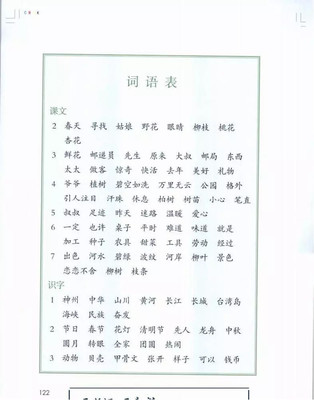 词语表
课文
2 春天 寻找 姑娘 野花 眼睛 柳枝 桃花
杏花
3 鲜花 邮递员 先生 原来 大叔 邮局 东西
太太 做客 惊奇 快活 去年 美好 礼物
4 爷爷 植树 碧空如洗 万里无云 公园 格外
引人注目 汗珠 休息 柏树 树苗 小心 笔直
5 叔叔 足迹 昨天 迷路 温暖 爱心
6 一定 也许 桌子 平时 难道 味道 就是
加工 种子 农具 甜菜 工具 劳动 经过
7 出色 河水 碧绿 波纹 河岸 柳叶 景色
恋恋不舍 柳树 枝条
识字
1 神州 中华 山川 黄河 长江 长城 台湾岛
海峡 民族 奋发
2 节日 春节 花灯 清明节 先人 龙舟 中秋
圆月 转眼 全家 团圆 热闹
3 动物 贝壳 甲骨文 张开 样子 可以 钱币
122